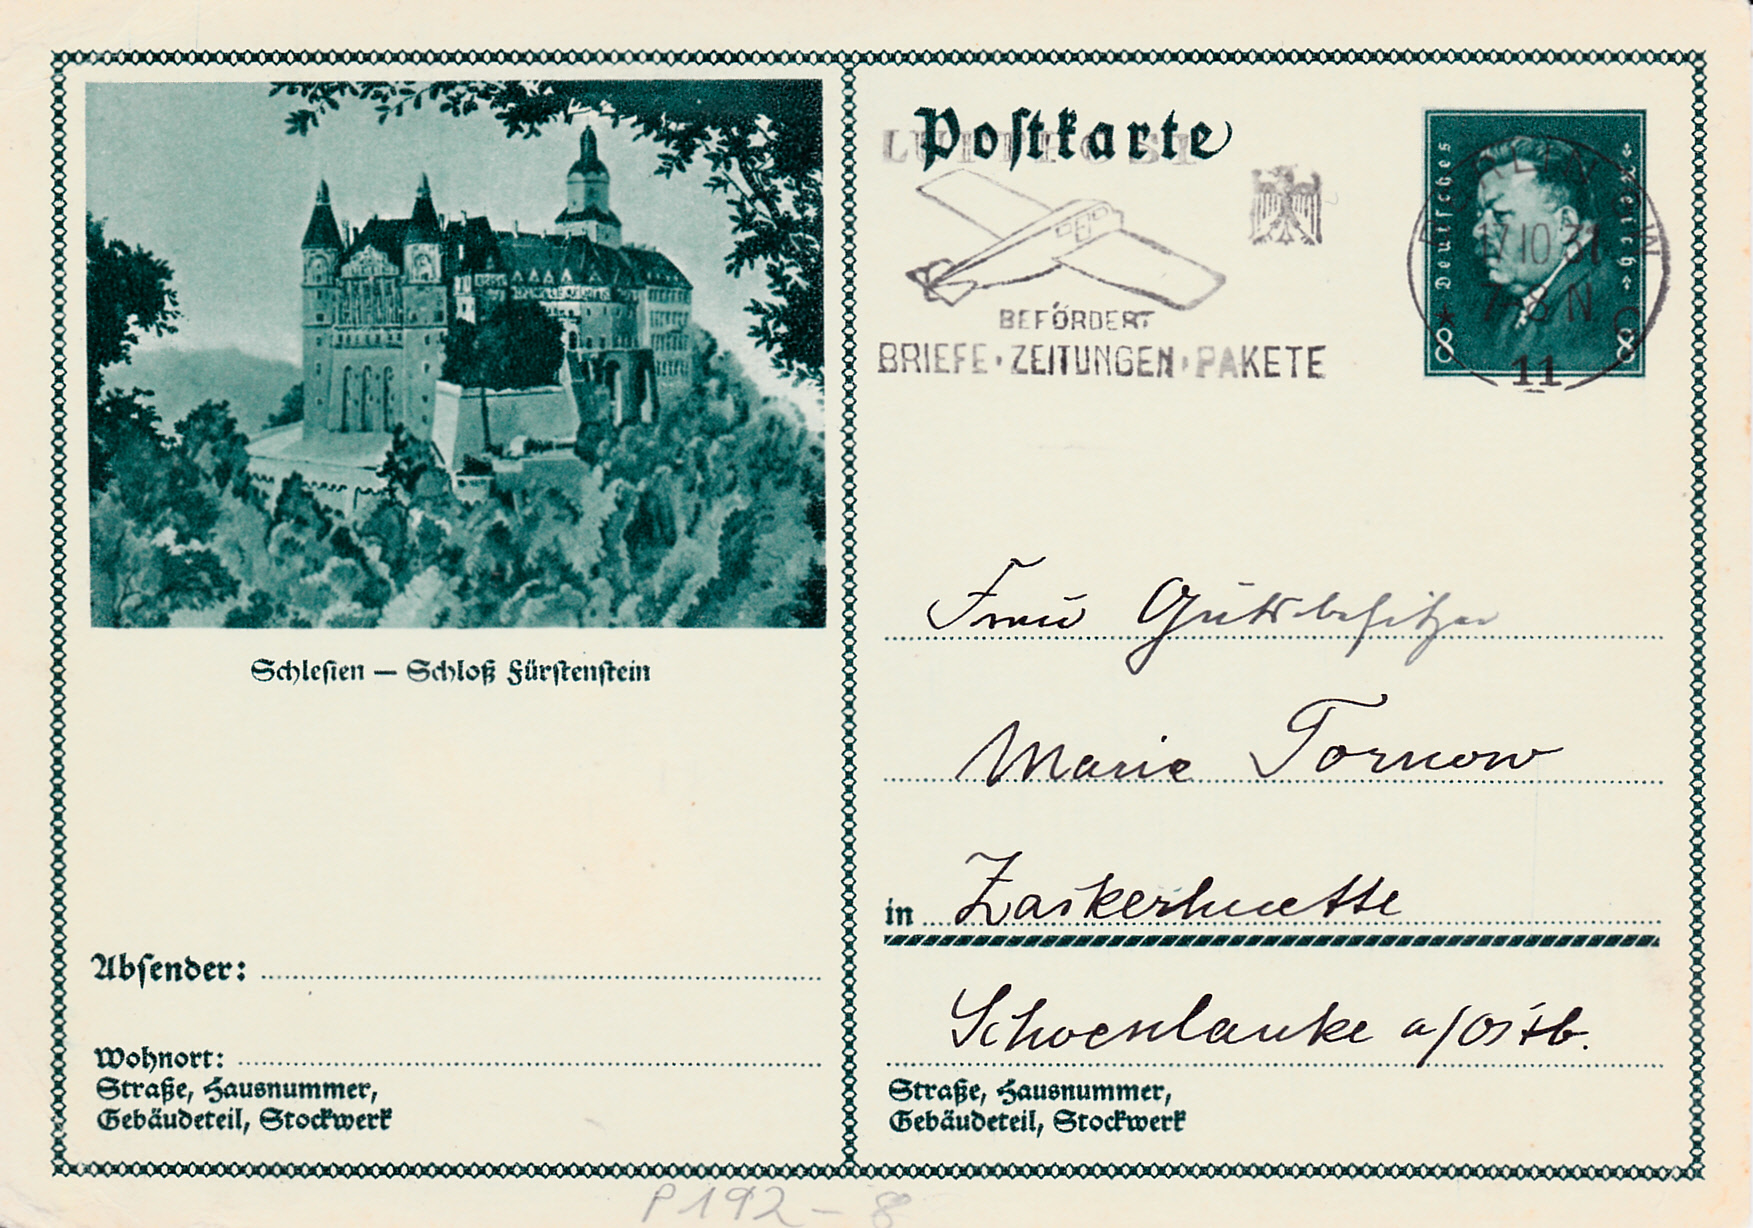 Schlesien — Schloß Fürstenstein
Absender:
Wohnort:
Straße, Hausnummer,
Gebäudeteil, Stockwerk
Postkarte
LUFTPOST
BEFÖRDERT
BRIEFE · ZEITUNGEN · PAKETE
Deutsches Reich
8 8
BERLIN
17.10.31
7-8 N
11
Frau Gutsbesitzer
Marie Tornow
in Zaskerhuette
Schoenlanke a/Ostb.
Straße, Hausnummer,
Gebäudeteil, Stockwerk
P 192 - 8